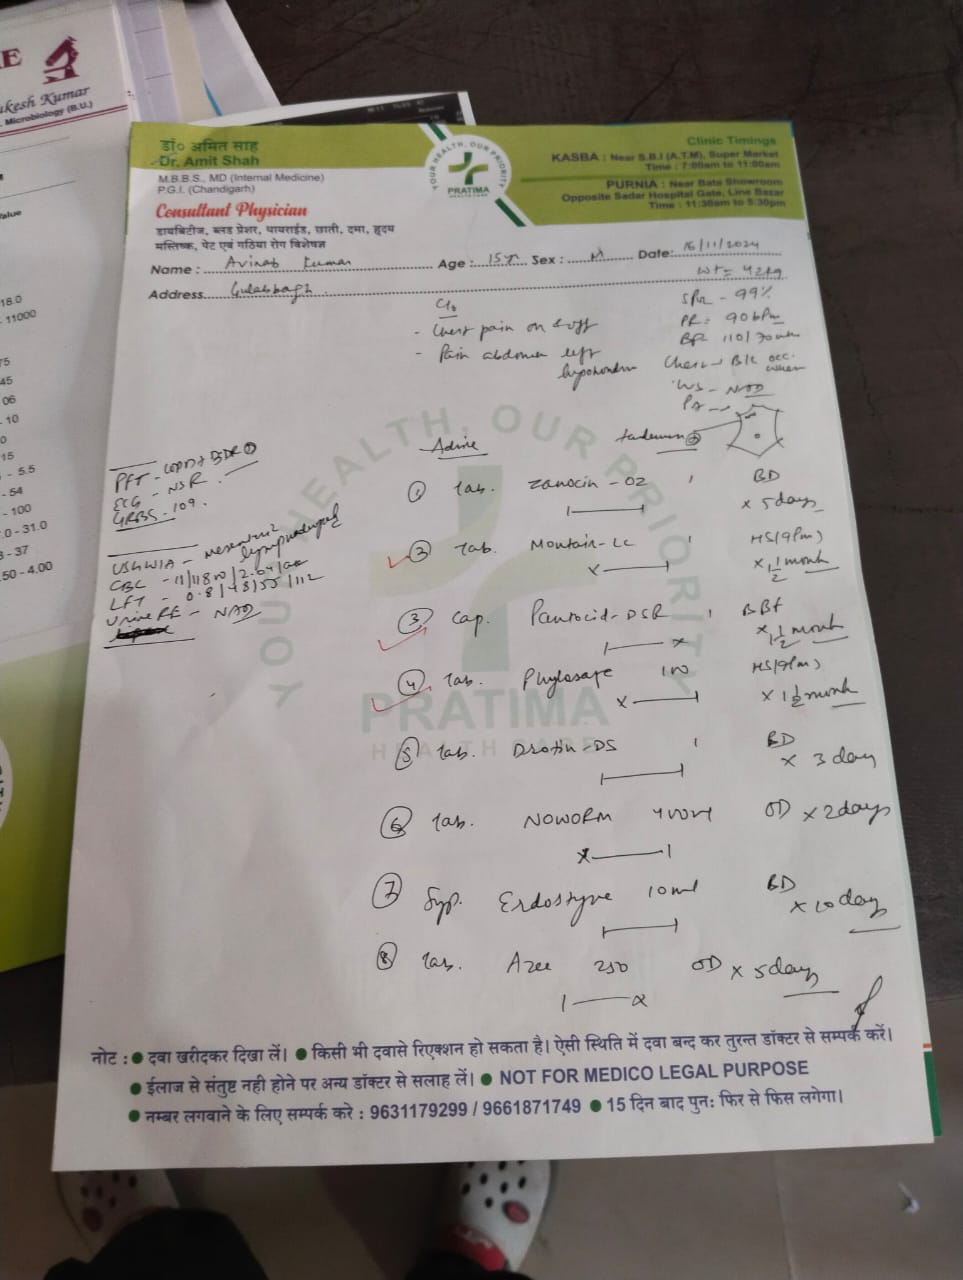 ukesh Kumar
. Microbiology (B.U.)
Value
18.0
- 11000
75
45
06
- 10
0
15
- 5.5
- 54
- 100
.0 - 31.0
3 - 37
.50 - 4.00
डॉ० अमित साह
Dr. Amit Shah
M.B.B.S., MD (Internal Medicine)
P.G.I. (Chandigarh)
Consultant Physician
डायबिटीज, ब्लड प्रेशर, थायराईड, छाती, दमा, हृदय
मस्तिष्क, पेट एवं गठिया रोग विशेषज्ञ
YOUR HEALTH, OUR PRIORITY
PRATIMA
HEALTH CARE
Clinic Timings
KASBA : Near S.B.I (A.T.M), Super Market
Time : 7:00am to 11:00am
PURNIA : Near Bata Showroom
Opposite Sadar Hospital Gate, Line Bazar
Time : 11:30am to 5:30pm
Name : Avinab Kumar Age : 15yr Sex : M Date: 16/11/2024
Address Gulabbagh
Wt = 42kg
C/o
- Chest pain on & off
- Pain abdomen left
SPO2 - 99%
PR = 90 bpm
BP 110/70
Chest B/L occ.
NAD
PA
ECG - NSR
GRBS - 109
CBC
LFT
Urine RE - NAD
Advice
① Tab. Zanocin - OZ 1 BD
x 5 days
② Tab. Montair-LC 1 HS (9pm)
x 1 1/2 month
③ Cap. Pantocid-DSR 1 BBF
x 1 1/2 month
④ Tab. Phylosafe 100 HS (9pm)
x 1 1/2 month
⑤ Tab. Drotin-DS 1 BD
x 3 day
⑥ Tab. NOWORM 400 OD x 2 days
⑦ Syp. 10 ml BD
x 10 day
⑧ Tab. Azee 250 OD x 5 days
YOUR HEALTH, OUR PRIORITY
PRATIMA
HEALTH CARE
नोट : ● दवा खरीदकर दिखा लें। ● किसी भी दवासे रिएक्शन हो सकता है। ऐसी स्थिति में दवा बन्द कर तुरन्त डॉक्टर से सम्पर्क करें।
● ईलाज से संतुष्ट नही होने पर अन्य डॉक्टर से सलाह लें। ● NOT FOR MEDICO LEGAL PURPOSE
● नम्बर लगवाने के लिए सम्पर्क करे : 9631179299 / 9661871749 ● 15 दिन बाद पुनः फिर से फिस लगेगा।